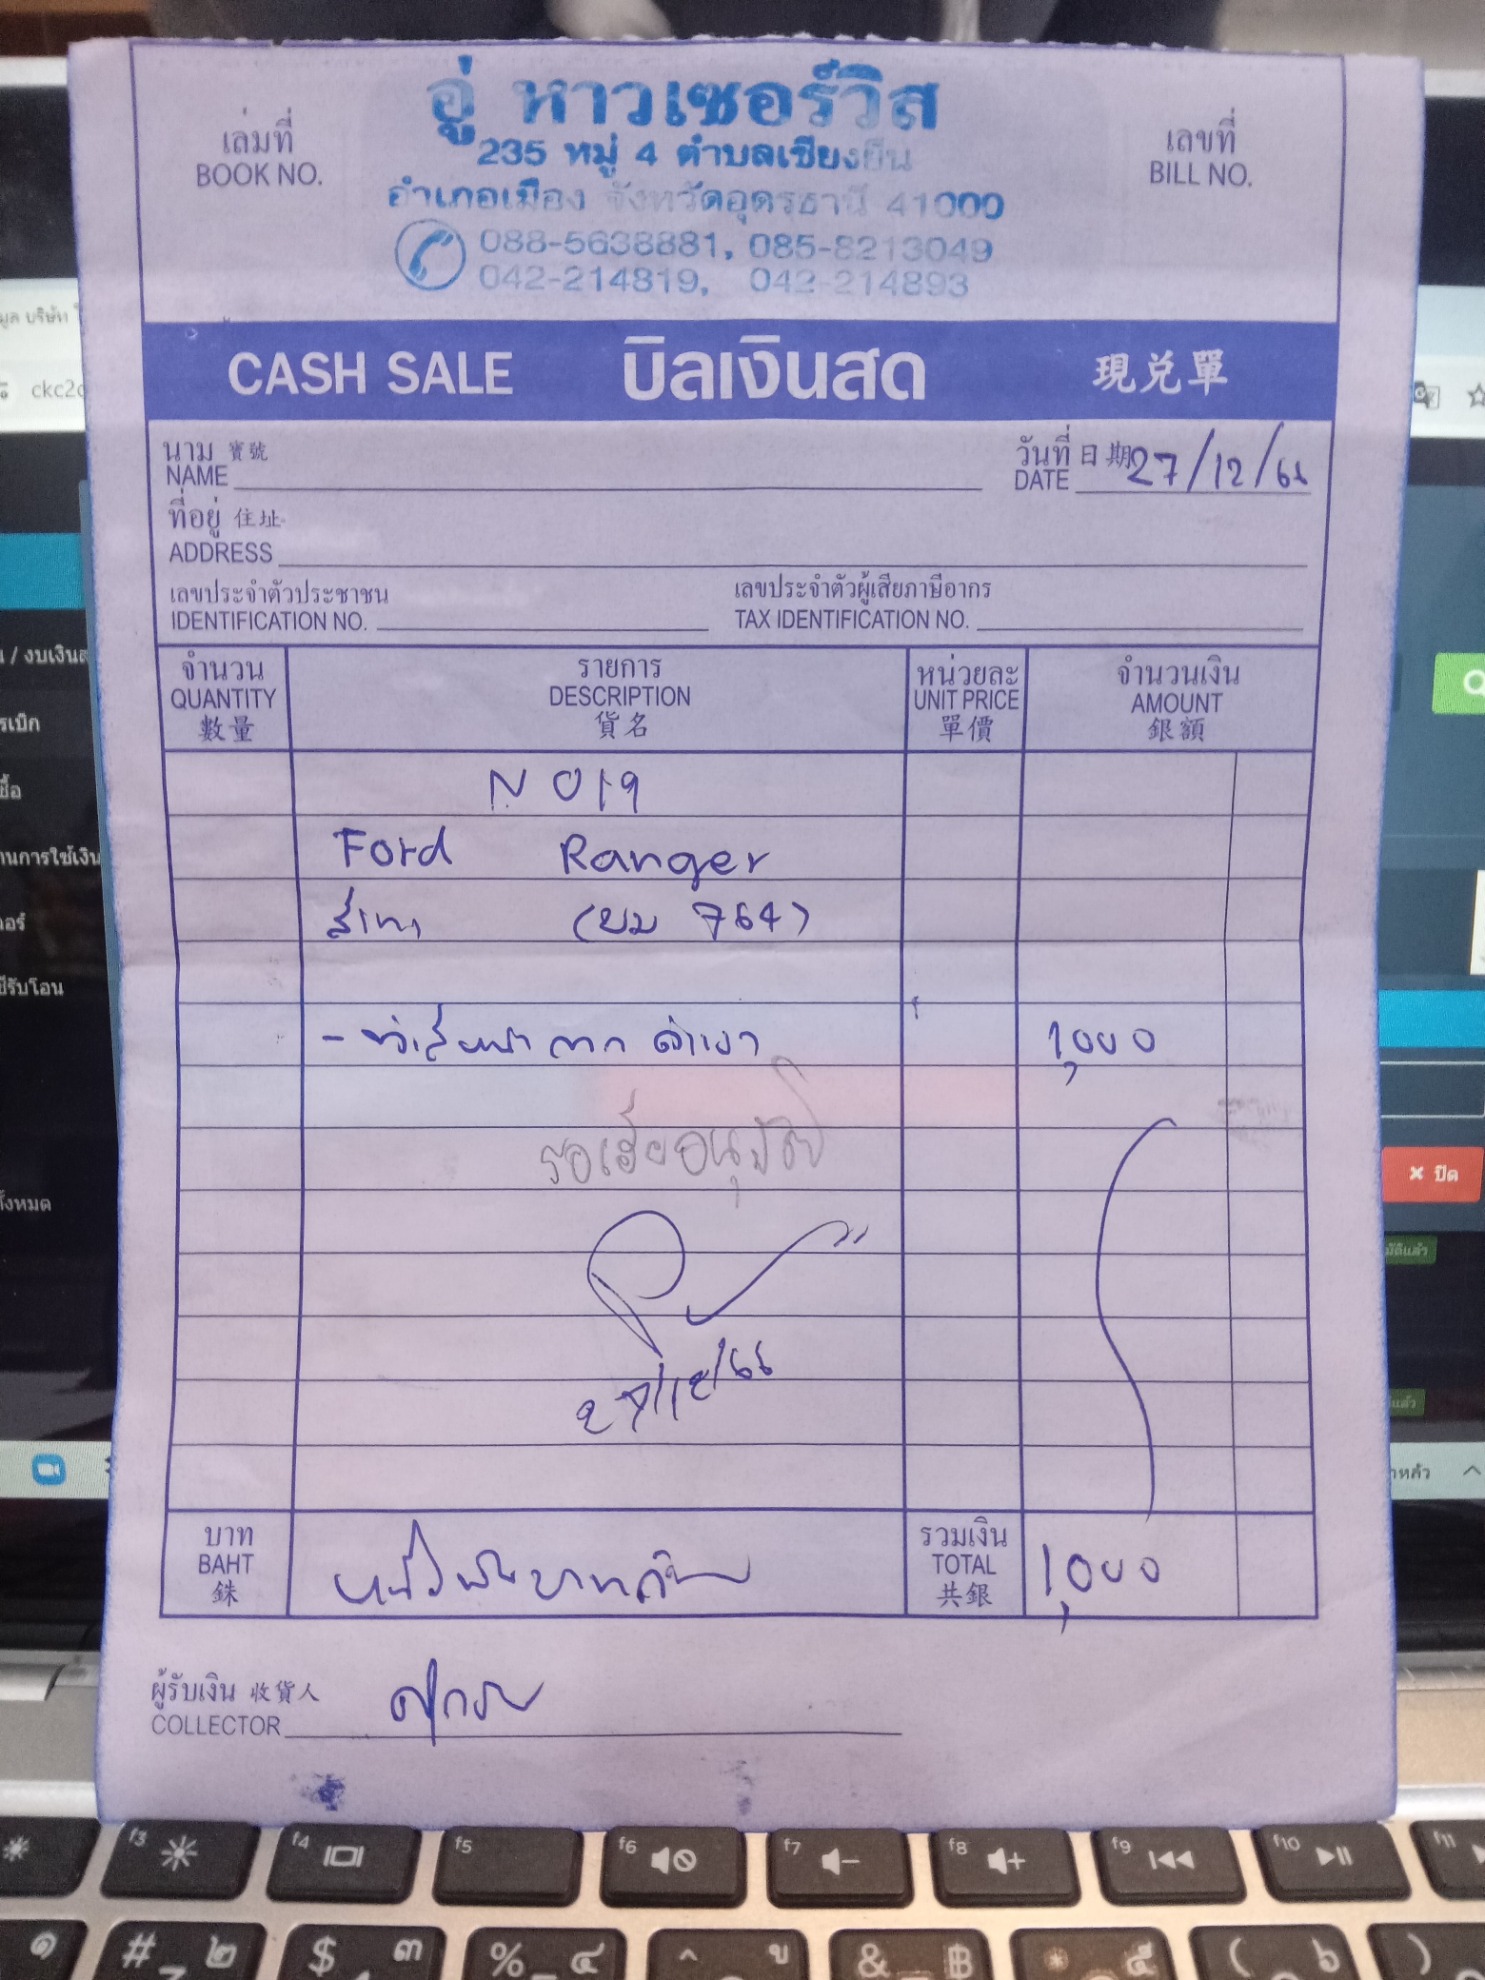 อู่ หาวเซอร์วิส
235 หมู่ 4 ตำบลเชียงยืน
อำเภอเมือง จังหวัดอุดรธานี 41000
088-5638881, 085-8213049
042-214819, 042-214893
เล่มที่
BOOK NO.
เลขที่
BILL NO.
CASH SALE บิลเงินสด 現兑單
นาม 寶號
NAME
วันที่ 日期 27/12/66
DATE
ที่อยู่ 住址
ADDRESS
เลขประจำตัวประชาชน
IDENTIFICATION NO.
เลขประจำตัวผู้เสียภาษีอากร
TAX IDENTIFICATION NO.
จำนวน รายการ หน่วยละ จำนวนเงิน
QUANTITY DESCRIPTION UNIT PRICE AMOUNT
數量 貨名 單價 銀額
N 019
Ford Ranger
สีเทา (ขม 764)
1,000
รอเฮียอนุมัติ
27/12/66
บาท
BAHT
銖
หนึ่งพันบาทถ้วน
รวมเงิน
TOTAL
共銀
1,000
ผู้รับเงิน 收貨人
COLLECTOR
ckc2
รเบิก
านการใช้เงิน
ปีรับโอน
ั้งหมด
ปิด
f3
f4
f5
f6
f7
f8
f9
f10
f11